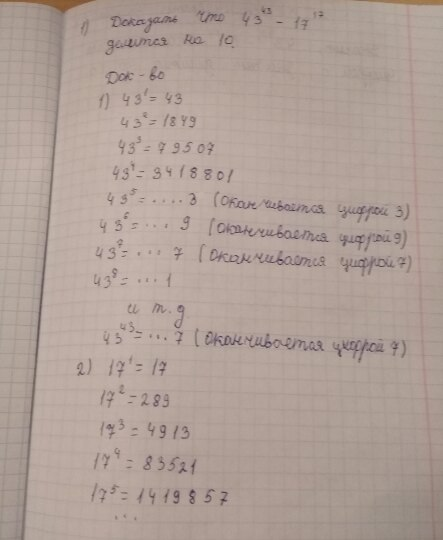 1) Доказать что 43⁴³ - 17¹⁷
делится на 10.
Док-во
1) 43¹ = 43
43² = 1849
43³ = 79507
43⁴ = 3418801
43⁵ = .... 3 (оканчивается цифрой 3)
43⁶ = ... 9 (оканчивается цифрой 9)
43⁷ = ... 7 (оканчивается цифрой 7)
43⁸ = ... 1
и т.д
43⁴³ = ... 7 (оканчивается цифрой 7)
2) 17¹ = 17
17² = 289
17³ = 4913
17⁴ = 83521
17⁵ = 1419857
...